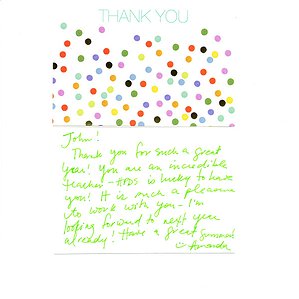 THANK YOU
John!
Thank you for such a great
year! You are an incredible
teacher - HPDS is lucky to have
you! It is such a pleasure
to work with you - I'm
looking forward to next year
already! Have a great summer!
☺ Amanda